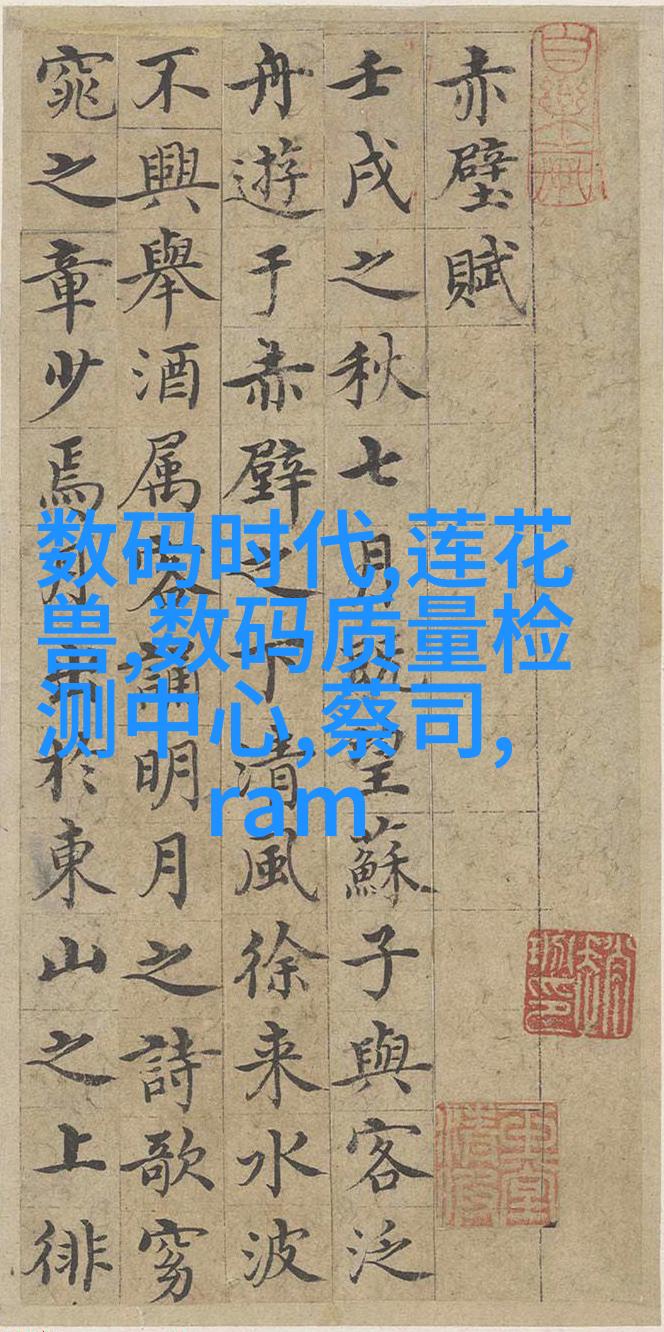 赤壁賦
壬戌之秋七月既望蘇子與客泛
舟遊于赤壁之下清風徐来水波
不興舉酒属客誦明月之詩歌窈
窕之章少焉月出於東山之上徘
数码时代,莲花
兽,数码质量检
测中心,蔡司,
ram